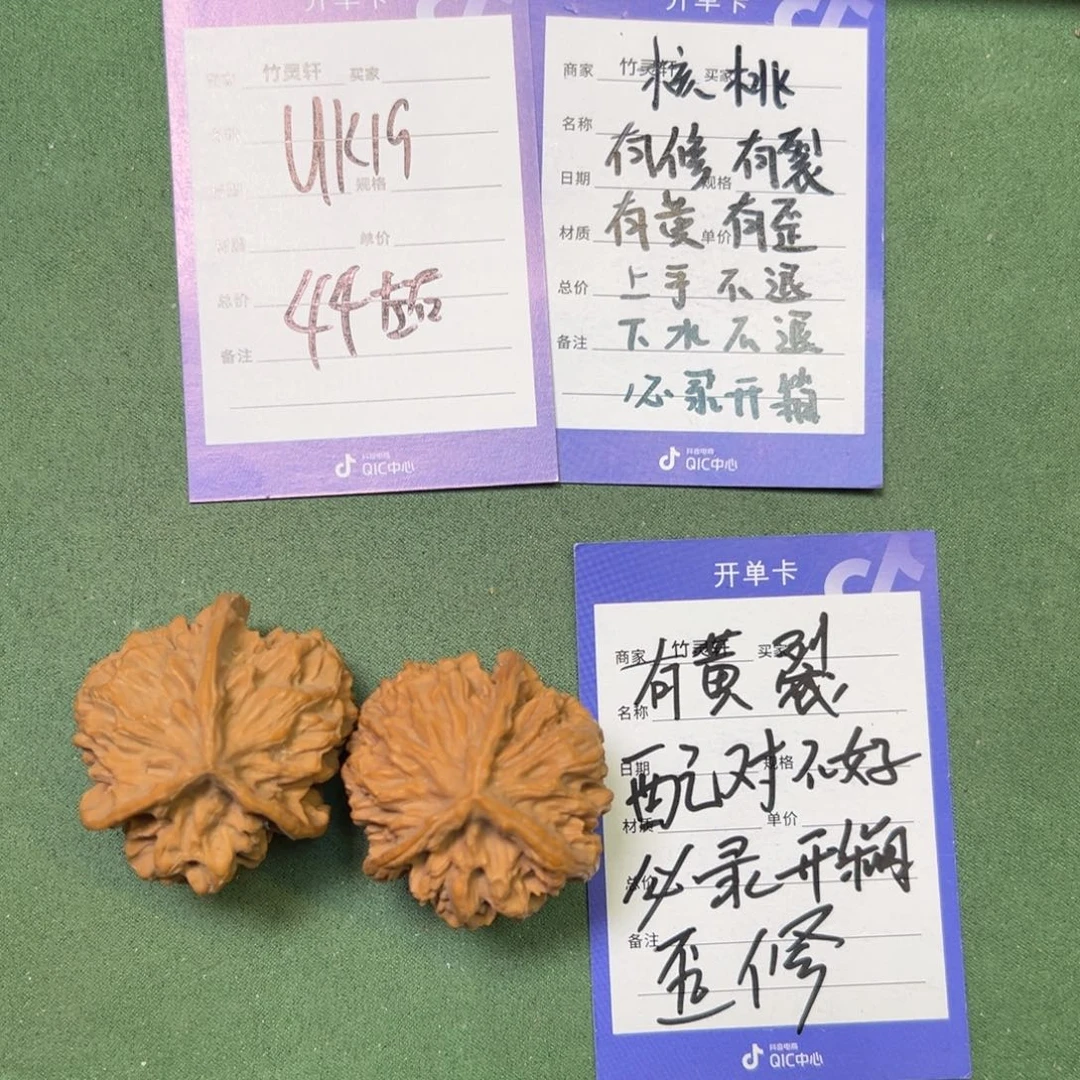 开单卡
商家 竹灵轩 买家
UK19
规格
单价
总价
44掂
备注
抖音电商
QIC中心
开单卡
商家 竹灵轩 买家
核桃
名称
有修 有裂
日期 规格
有黄 有歪
材质 单价
总价 上手不退
备注 下水不退
必录开箱
抖音电商
QIC中心
开单卡
商家 竹灵轩 买家
有黄 裂
名称
日期 规格
配对不好
材质 单价
总价
必录开箱
备注
歪修
抖音电商
QIC中心